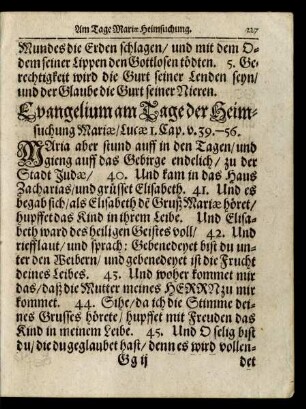 Am Tage Mariæ Heimsuchung. 227
Mundes die Erden schlagen/ und mit dem O-
dem seiner Lippen den Gottlosen tödten. 5. Ge-
rechtigkeit wird die Gurt seiner Lenden seyn/
und der Glaube die Gurt seiner Nieren.
Evangelium am Tage der Heim-
suchung Mariæ/ Lucæ 1. Cap. v. 39.-56.
MAria aber stund auff in den Tagen/ und
gieng auff das Gebirge endelich/ zu der
Stadt Judæ/ 40. Und kam in das Haus
Zacharias/ und grüsset Elisabeth. 41. Und es
begab sich/ als Elisabeth dẽ Gruß Mariæ höret/
hupffet das Kind in ihrem Leibe. Und Elisa-
beth ward des heiligen Geistes voll/ 42. Und
rieff laut/ und sprach: Gebenedeyet bist du un-
ter den Weibern/ und gebenedeyet ist die Frucht
deines Leibes. 43. Und woher kommet mir
das/ daß die Mutter meines HERRN zu mir
kommet. 44. Sihe/ da ich die Stimme dei-
nes Grusses hörete/ hupffet mit Freuden das
Kind in meinem Leibe. 45. Und O selig bist
du/ die du geglaubet hast/ denn es wird vollen-
Gg ij det